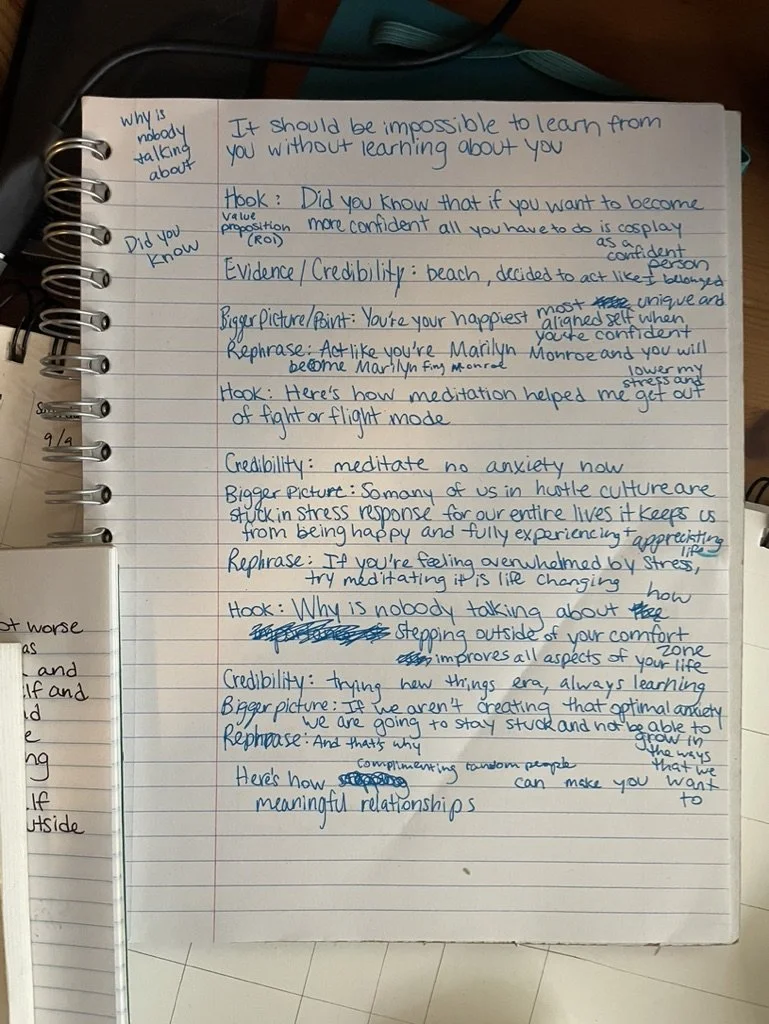 why is
nobody
talking
about
It should be impossible to learn from
you without learning about you
Did you
know
Hook: Did you know that if you want to become
value
proposition
(ROI)
more confident all you have to do is cosplay
as a
confident
person
Evidence/Credibility: beach, decided to act like I belonged
Bigger Picture/Point: You're your happiest most unique and
aligned self when
you're confident
Rephrase: Act like you're Marilyn Monroe and you will
become Marilyn fing Monroe
Hook: Here's how meditation helped me lower my
stress and
get out
of fight or flight mode
Credibility: meditate no anxiety now
Bigger Picture: So many of us in hustle culture are
stuck in stress response for our entire lives it keeps us
from being happy and fully experiencing + appreciating
life
Rephrase: If you're feeling overwhelmed by stress,
try meditating it is life changing
Hook: Why is nobody talking about how
stepping outside of your comfort
zone
improves all aspects of your life
Credibility: trying new things era, always learning
Bigger picture: If we aren't creating that optimal anxiety
we are going to stay stuck and not be able to
grow in
the ways
that we
want
to
Rephrase: And that's why
Here's how complimenting random people can make you
meaningful relationships
9/9
ot worse
as
and
lf and
d
e
ng
lf
utside